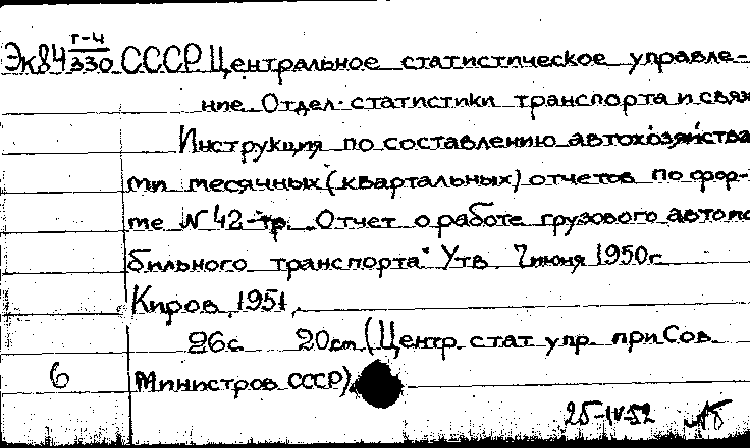 Эк84 Г-4/330 СССР Центральное статистическое управле-
ние. Отдел статистики транспорта и связи
Инструкция по составлению автохозяйства-
ми месячных (квартальных) отчетов по фор-
ме №42-тр. "Отчет о работе грузового автомо-
бильного транспорта" Утв. 7 июня 1950г.
Киров, 1951,
26с. 20см. (Центр. стат упр. при Сов.
6 Министров СССР).
25-IV-52